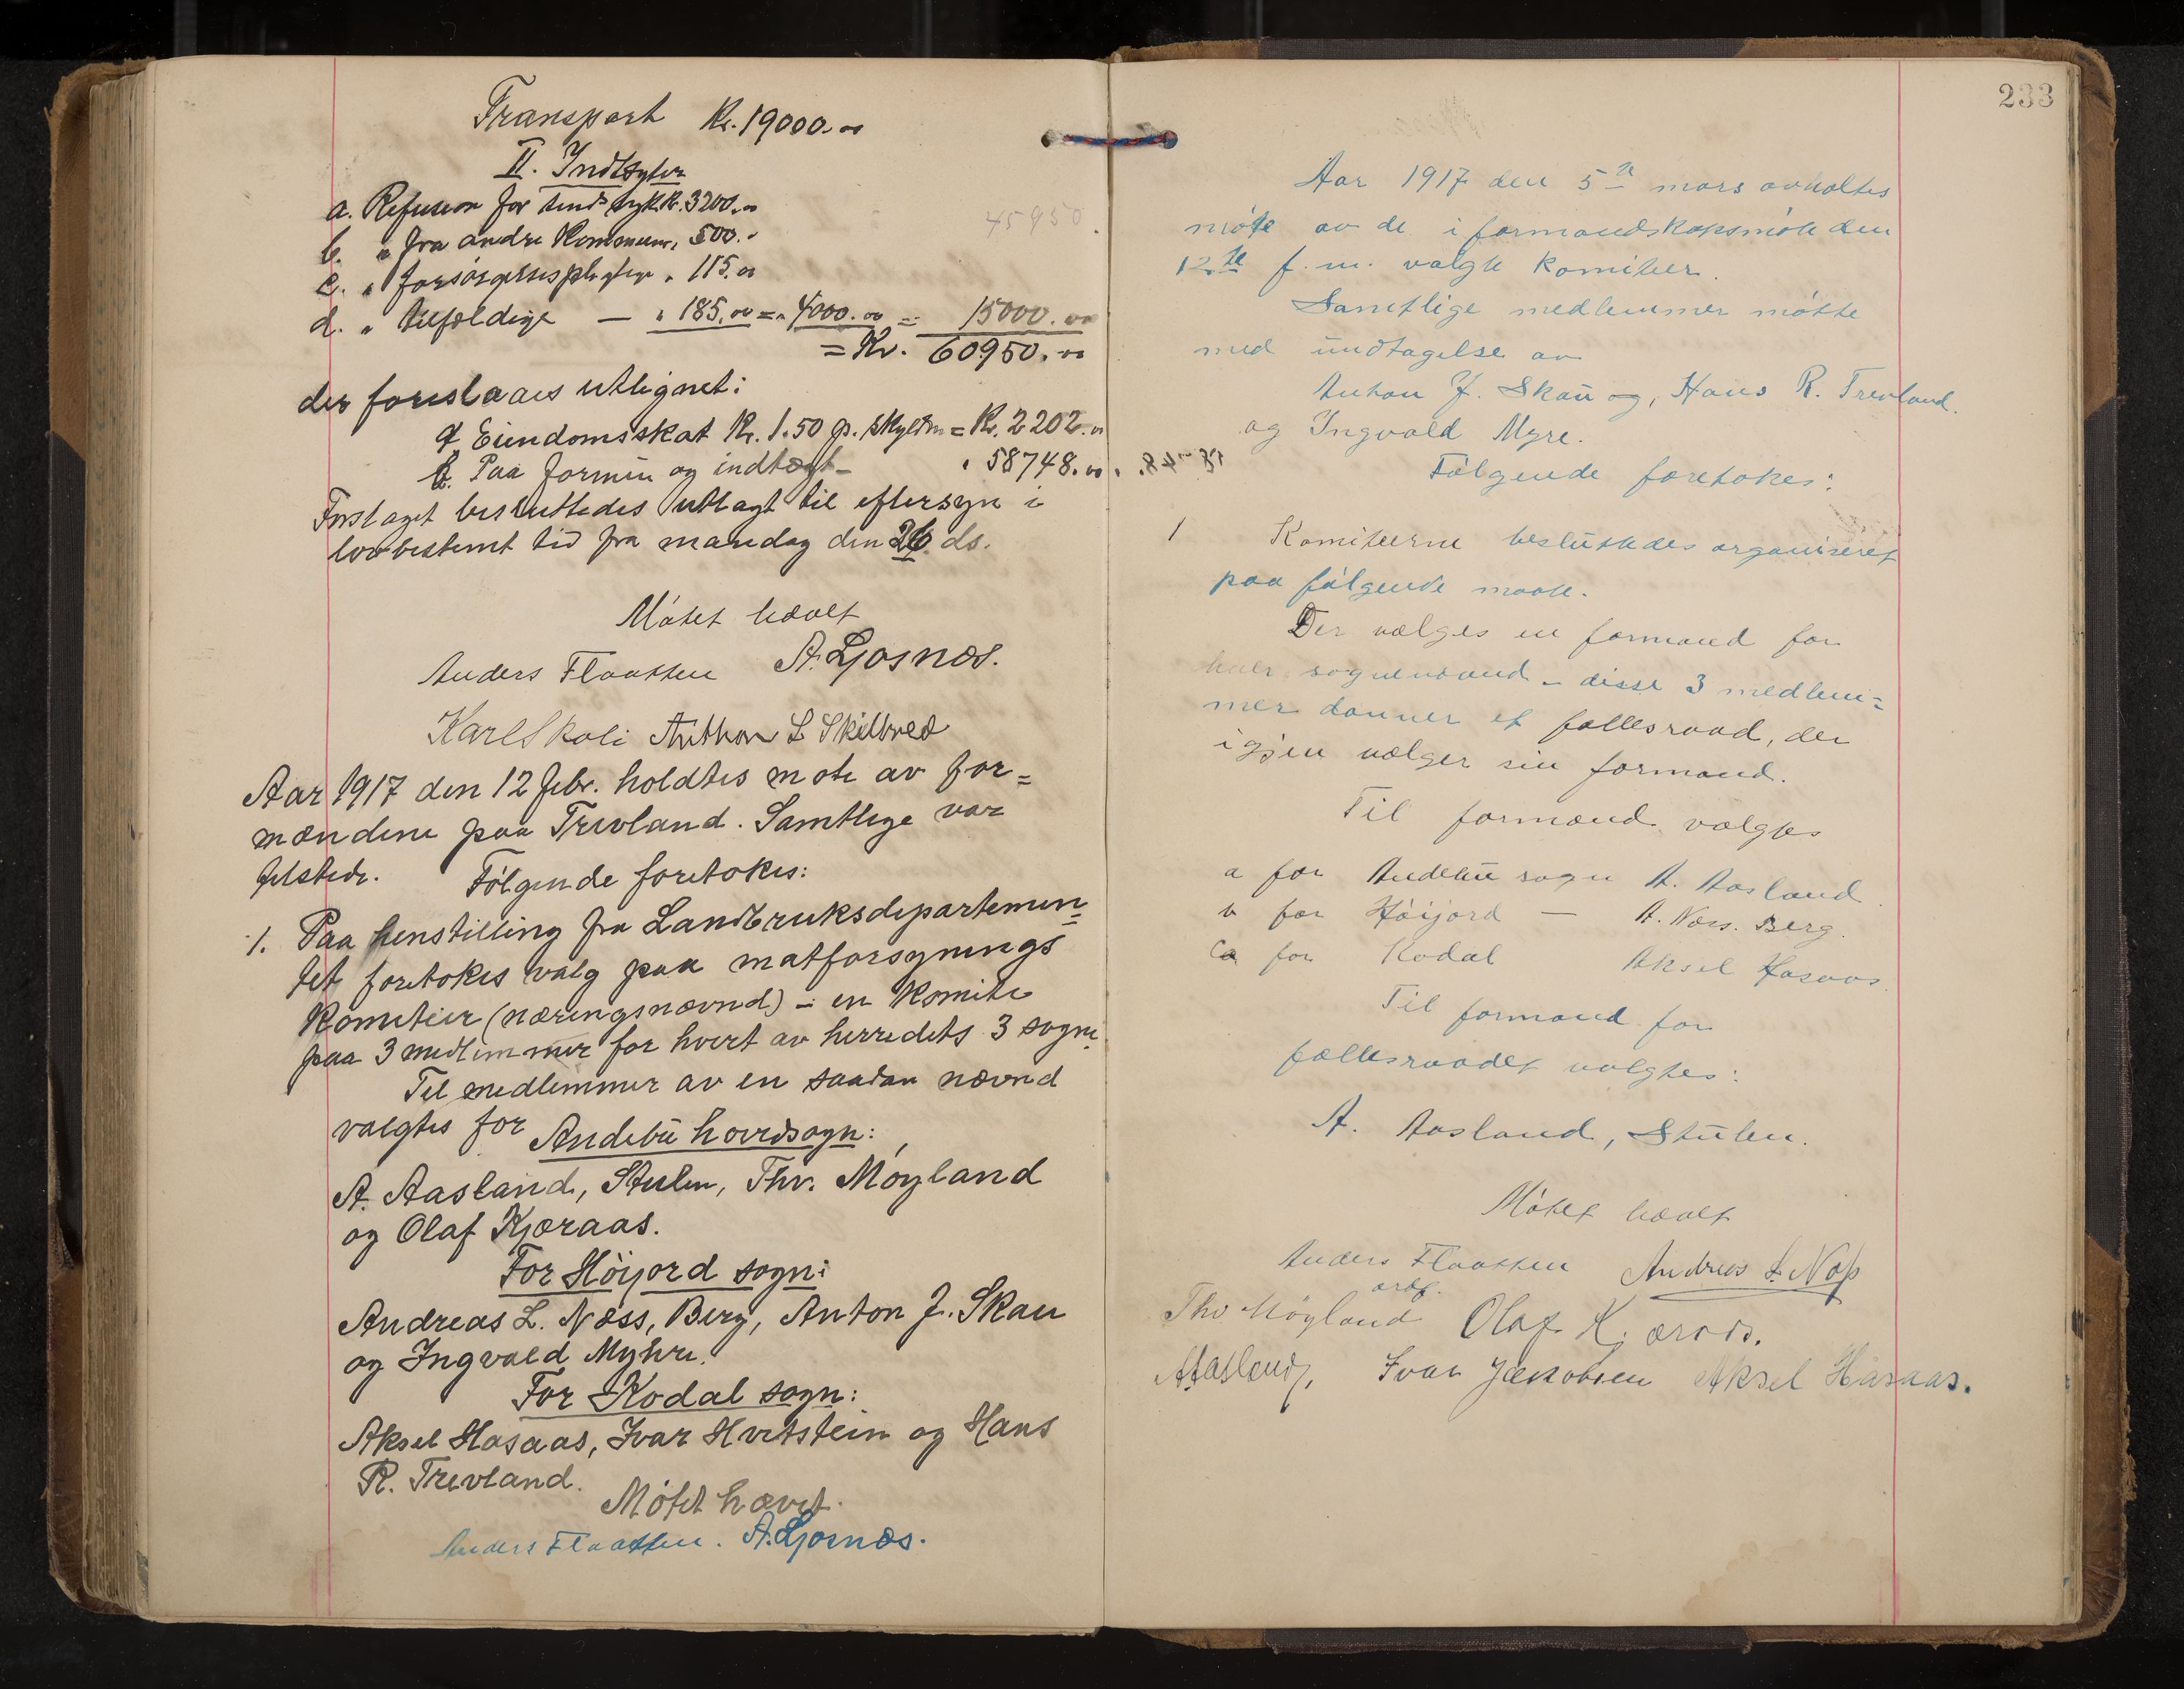 Transport Kr. 19000.00
II. Indtægter
a. Refusion for sind syk Kr. 3200.00
b. " fra andre Kommun. 500.-
c. " forsörgelsespligtige " 115.00
d. " tilfældige — " 185.00 = " 4000.00 = 15000.00
= Kr. 60950.00
der foreslaaes utlignet:
a. Eiendomsskat Kr. 1.50 p. skyldm = Kr. 2202.00
b. Paa formue og indtægt - " 58748.00
Forslaget besluttedes utlagt til eftersyn i
lovbestemt tid fra mandag den 26 ds.
Mötet hævet
Anders Flaatten A. Gjosnæs.
Karl Skoli Anthon L Skilbred
Aar 1917 den 12 febr. holdtes möte av for=
mændene paa Trevland. Samtlige var
tilstede. Fölgende foretokes:
1. Paa henstilling fra Landbruksdepartemen=
tet foretokes valg paa matforsynings
Komiteer (næringsnævnd) - en komite
paa 3 medlemmer for hvert av herredets 3 sogne.
Til medlemmer av en saadan nævnd
valgtes for Andebu hovedsogn:
A. Aasland, Stulen, Thv. Möyland
og Olaf Kjæraas.
For Höijord sogn:
Andreas L. Næss, Berg, Anton J. Skau
og Ingvald Myhre.
For Kodal sogn:
Aksel Hasaas, Ivar Hvitstein og Hans
R. Trevland.
Mötet hævet.
Anders Flaatten. A. Gjosnæs.
45950
233
Aar 1917 den 5te mars avholtes
möte av de i formandskapsmöte den
12te f.m. valgte komiteer.
Samtlige medlemmer mötte
med undtagelse av
Anton J. Skau og, Hans R. Trevland.
og Ingvald Myre.
Fölgende foretokes:
1 Komiteerne besluttedes organiseret
paa fölgende maate.
Der vælges en formand for
hver sognenævnd - disse 3 medlem=
mer danner et fællesraad, der
igjen vælger sin formand.
Til formænd valgtes
a for Andebu sogn A. Aasland.
b for Höijord — A. Næss. Berg.
c for Kodal Aksel Hasaas.
Til formand for
fællesraadet valgtes:
A. Aasland, Stulen.
Mötet hævet
Anders Flaatten Andreas L. Næss
ordf.
Thv Möyland Olaf Kjæraas.
A Aasland, Ivar Jakobsen Aksel Hasaas.